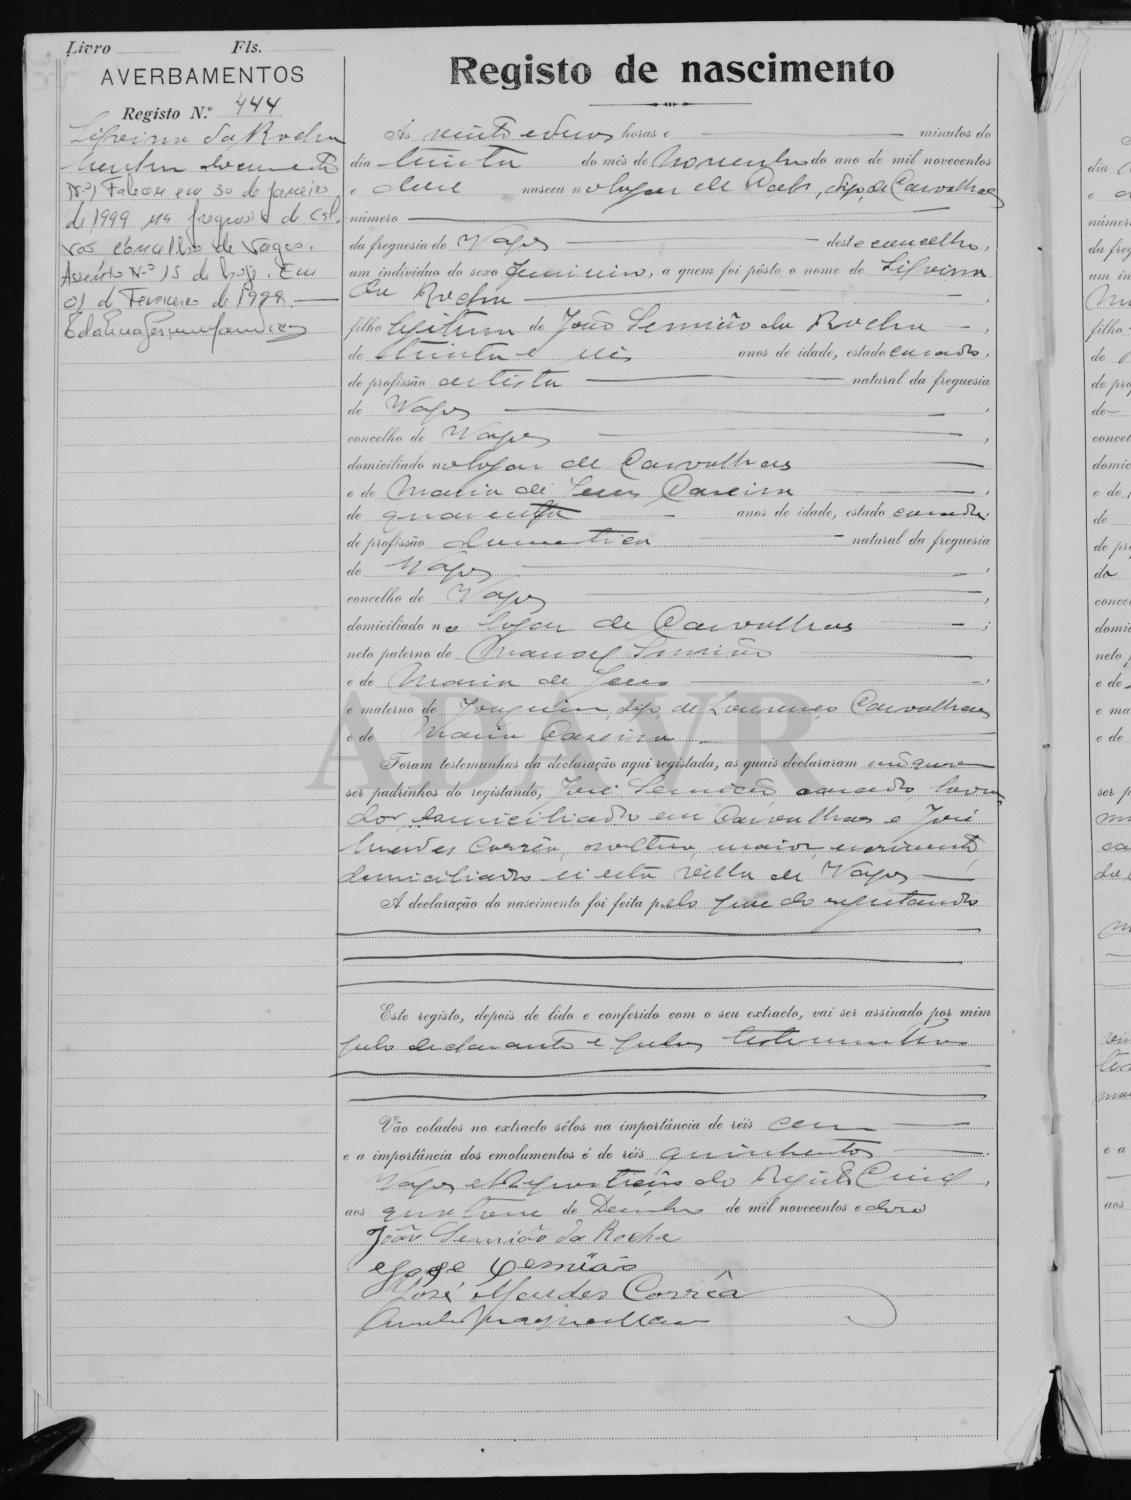 Livro Fls.
AVERBAMENTOS
Registo N.º 444
Silveirina da Rocha
documento
Nº1 Faleceu em 30 de Janeiro
de 1999 na freguesia de Cal-
vão concelho de Vagos.
Assento Nº 15 de hoje. Em
01 de Fevereiro de 1999.
Registo de nascimento
Ás vinte e duas horas e minutos do
dia trinta do mês de Novembro do ano de mil novecentos
e doze nasceu no logar de digo, de Carvalhaes
número
da freguesia de Vagos deste concelho,
um indivíduo do sexo feminino, a quem foi pôsto o nome de Silveirina
da Rocha
filho legitima de João Semião da Rocha
de trinta e seis anos de idade, estado casado,
de profissão artista natural da freguesia
de Vagos
concelho de Vagos
domiciliado no logar de Carvalhaes
e de Maria de Jesus Caseira
de quarenta anos de idade, estado casada,
de profissão domestica natural da freguesia
de Vagos
concelho de Vagos
domiciliado no logar de Carvalhaes
neto paterno de Manoel Semião
e de Maria de Jesus
e materno de Joaquim, digo, de Lourenço Carvalhaes
e de Maria Caseira
Foram testemunhas da declaração aqui registada, as quais declararam não querer
ser padrinhos do registando, José Semião, casado, lavra-
dor, domiciliado em Carvalhaes e José
Mendes Corrêa, solteiro, maior,
domiciliado n'esta villa de Vagos
A declaração do nascimento foi feita pelo pae do registando
Este registo, depois de lido e conferido com o seu extracto, vai ser assinado por mim
pelo declarante e pelas testemunhas
Vão colados no extracto sêlos na importância de réis cem
e a importância dos emolumentos é de réis quinhentos
Vagos e Repartição do Registo Civil,
aos quatorze de Dezembro de mil novecentos e doze
João Semião da Rocha
Semião
José Mendes Corrêa
ADAVR